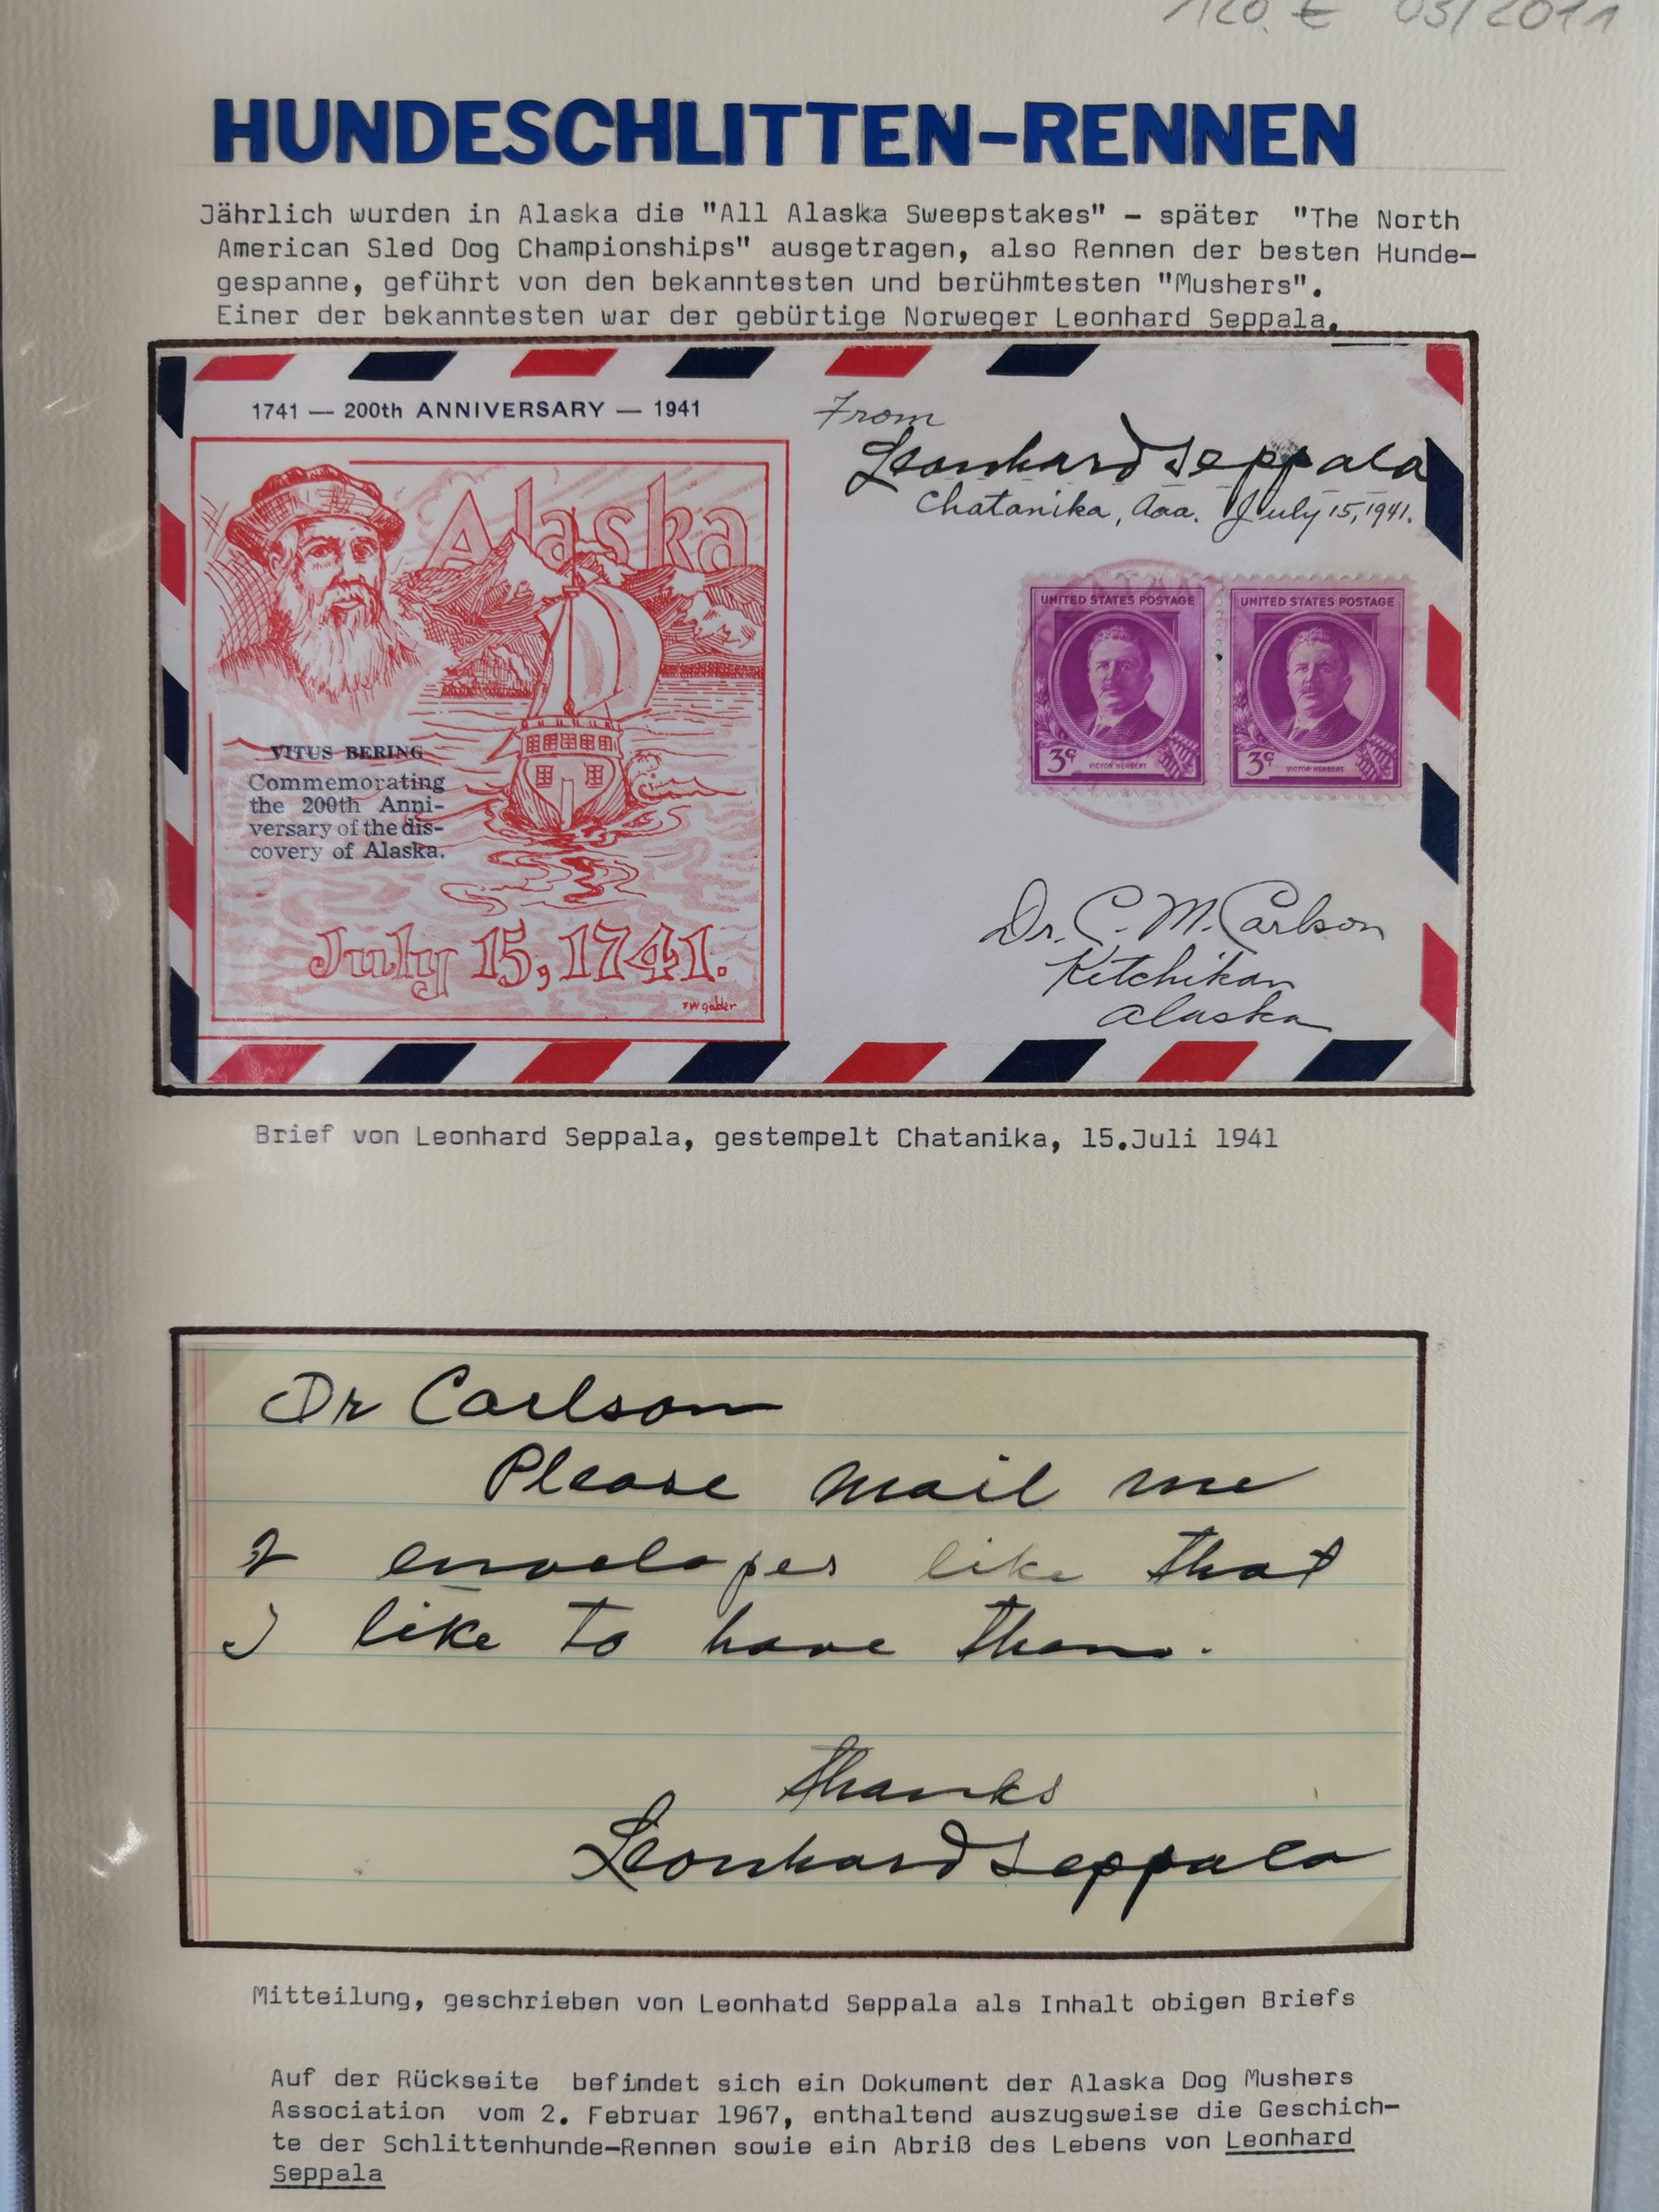 120.€ 03/2011
HUNDESCHLITTEN-RENNEN
Jährlich wurden in Alaska die "All Alaska Sweepstakes" – später "The North
American Sled Dog Championships" ausgetragen, also Rennen der besten Hunde-
gespanne, geführt von den bekanntesten und berühmtesten "Mushers".
Einer der bekanntesten war der gebürtige Norweger Leonhard Seppala.
1741 — 200th ANNIVERSARY — 1941
From
Leonhard Seppala
Chatanika, Aaa. July 15, 1941.
Alaska
UNITED STATES POSTAGE
3¢ VICTOR HERBERT
UNITED STATES POSTAGE
3¢ VICTOR HERBERT
VITUS BERING
Commemorating
the 200th Anni-
versary of the dis-
covery of Alaska.
July 15, 1741.
Dr. C. M. Carlson
Ketchikan
Alaska
Brief von Leonhard Seppala, gestempelt Chatanika, 15.Juli 1941
Dr Carlson
Please mail me
2 envelopes like that
I like to have them.
thanks
Leonhard Seppala
Mitteilung, geschrieben von Leonhatd Seppala als Inhalt obigen Briefs
Auf der Rückseite befindet sich ein Dokument der Alaska Dog Mushers
Association vom 2. Februar 1967, enthaltend auszugsweise die Geschich-
te der Schlittenhunde-Rennen sowie ein Abriß des Lebens von Leonhard
Seppala